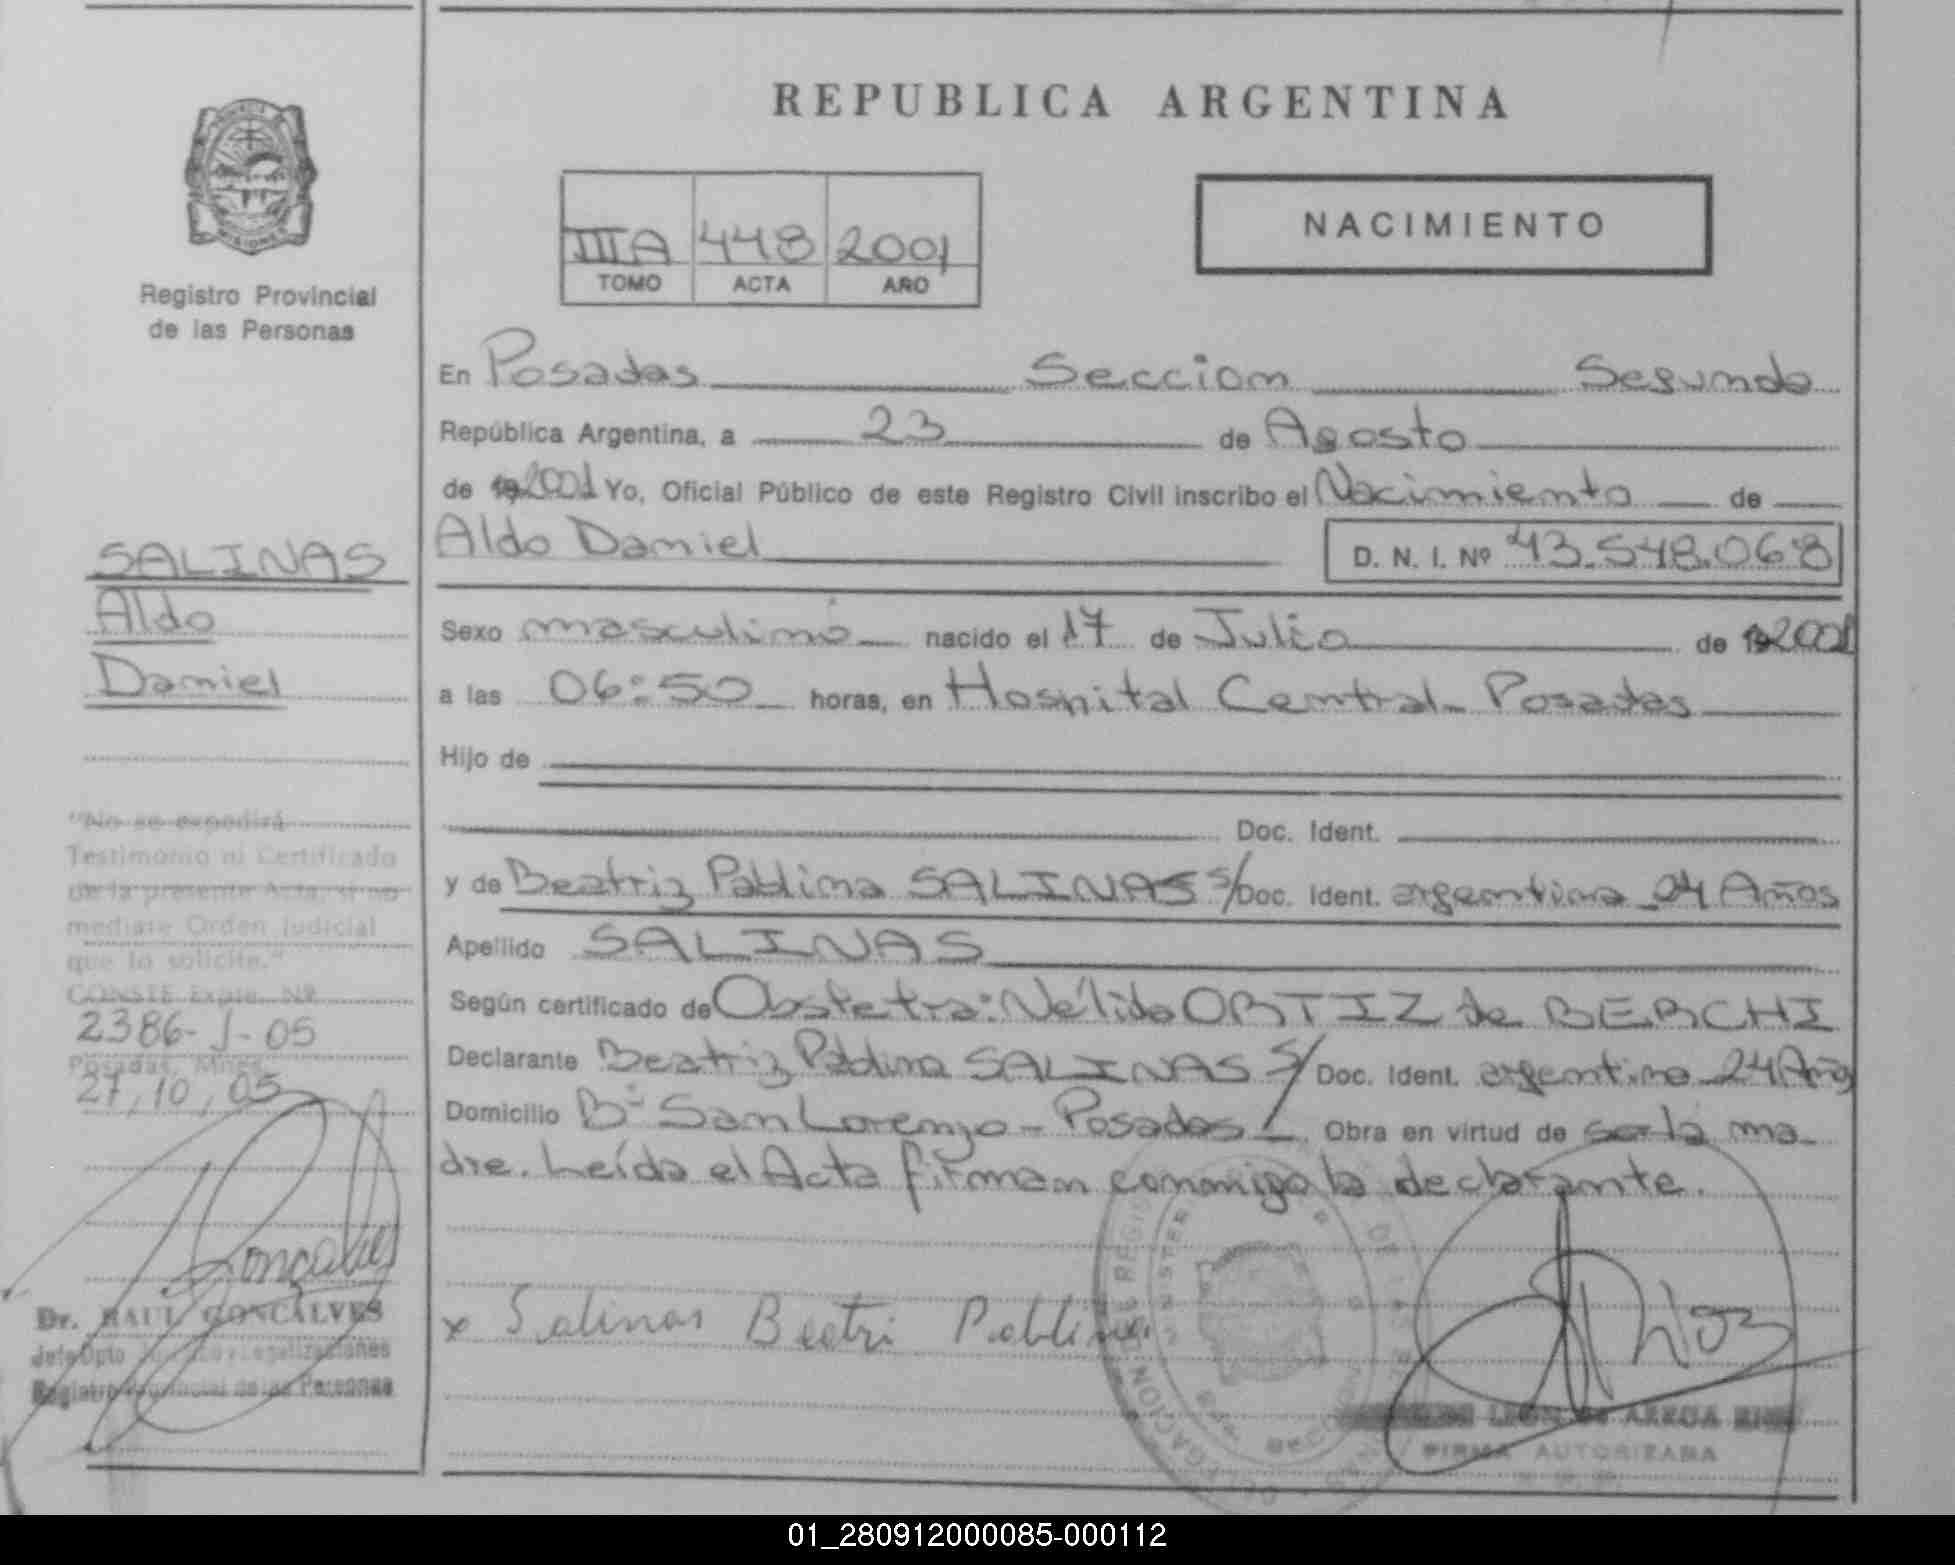 REPUBLICA ARGENTINA
MISIONES
Registro Provincial
de las Personas
IIIA 448 2001
TOMO ACTA AÑO
NACIMIENTO
En Posadas Seccion Segunda
República Argentina, a 23 de Agosto
de 192001 Yo, Oficial Público de este Registro Civil inscribo el Nacimiento de
Aldo Daniel D. N. I. Nº 43.548.068
Sexo masculino nacido el 17 de Julio de 192001
a las 06:50 horas, en Hospital Central - Posadas
Hijo de
Doc. Ident.
y de Beatriz Pablina SALINAS s/Doc. Ident. argentina 24 Años
Apellido SALINAS
Según certificado de Obstetra: Nélida ORTIZ de BERCHI
Declarante Beatriz Pablina SALINAS S/Doc. Ident. argentina 24 Años
Domicilio Bº San Lorenzo - Posadas Obra en virtud de ser la ma-
dre. Leída el Acta firman conmigo la declarante.
x Salinas Beatri Pablina
FIRMA AUTORIZADA
SALINAS
Aldo
Daniel
"No se expedirá
Testimonio ni Certificado
de la presente Acta, si no
mediare Orden Judicial
que lo solicite."
CONSTE Expte. Nº
2386-J-05
Posadas, Mnes.
27,10,05
Goncalves
Dr. RAUL GONCALVES
Jefe Dpto Legalizaciones
Registro Provincial de las Personas
01_280912000085-000112